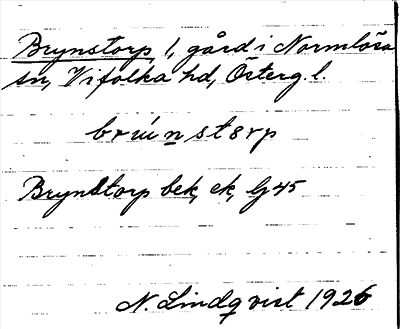 Brynstorp, 1, gård i Normlösa
sn, Vifolka hd, Österg. l.
brún̲st8rp
Brynstorp bek, ek, lg 45
N. Lindqvist 1926